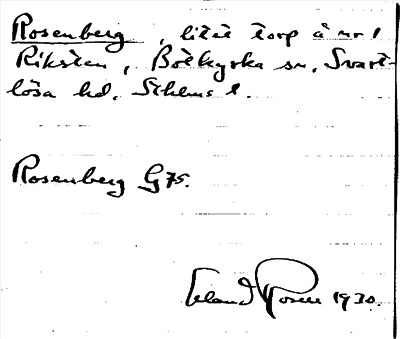 Rosenberg, litet torp å nr 1
Riksten, Botkyrka sn, Svart-
lösa hd. Sthlms l.
Rosenberg G75.
Erland Rosell 1930.